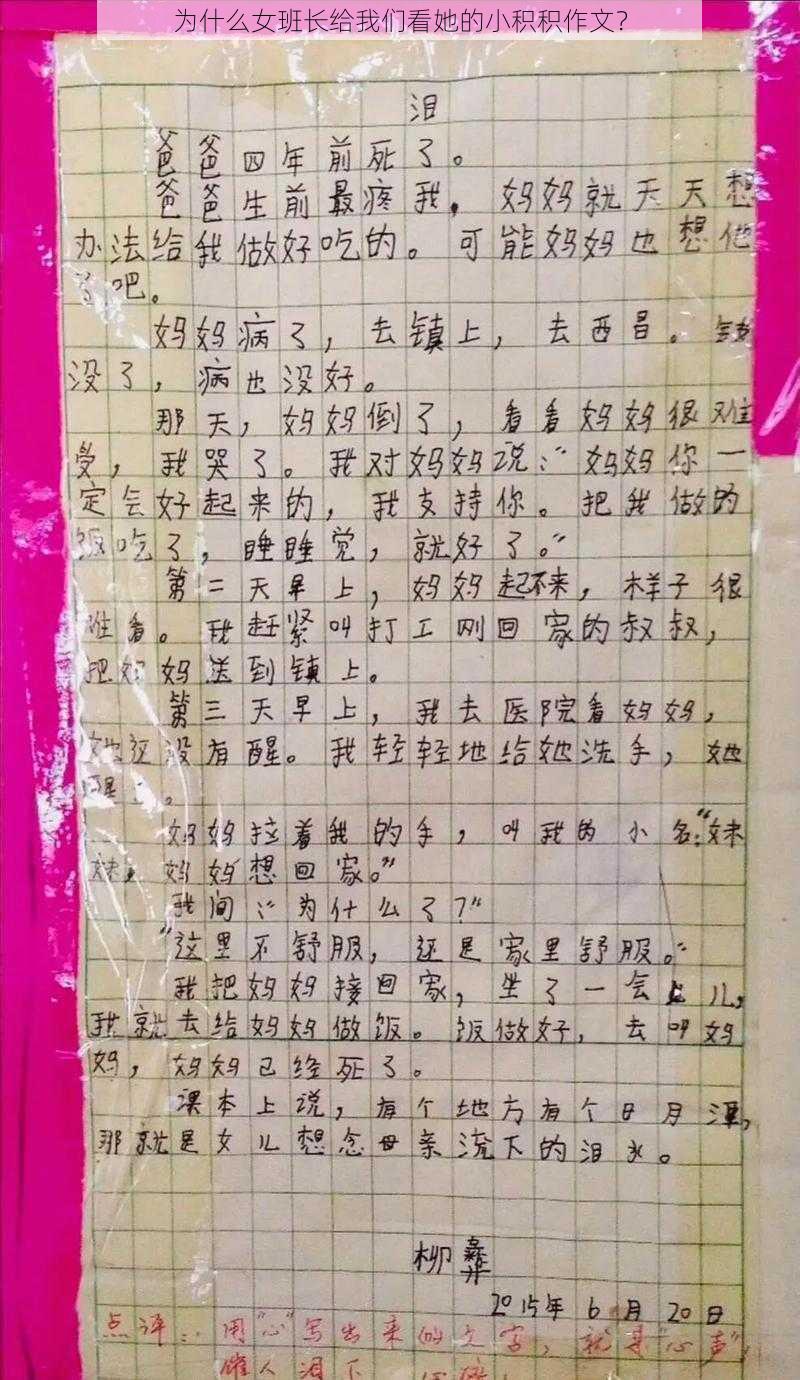 为什么女班长给我们看她的小积积作文?
泪
爸爸四年前死了。
爸爸生前最疼我，妈妈就天天想
办法给我做好吃的。可能妈妈也想他
了吧。
妈妈病了，去镇上，去西昌。钱
没了，病也没好。
那天，妈妈倒了，看看妈妈很难
受，我哭了。我对妈妈说：“妈妈你一
定会好起来的，我支持你。把我做的
饭吃了，睡睡觉，就好了。”
第二天早上，妈妈起不来，样子很
难看。我赶紧叫打工刚回家的叔叔，
把妈妈送到镇上。
第三天早上，我去医院看妈妈，
她还没有醒。我轻轻地给她洗手，她
醒了。
妈妈拉着我的手，叫我的小名：“妹
妹，妈妈想回家。”
我问：“为什么了？”
“这里不舒服，还是家里舒服。”
我把妈妈接回家，坐了一会儿，
我就去给妈妈做饭。饭做好，去叫妈
妈，妈妈已经死了。
课本上说，有个地方有个日月潭，
那就是女儿想念母亲流下的泪水。
柳彝
2015年6月20日
点评：用“心”写出来的文字，就是“心声”，
催人泪下